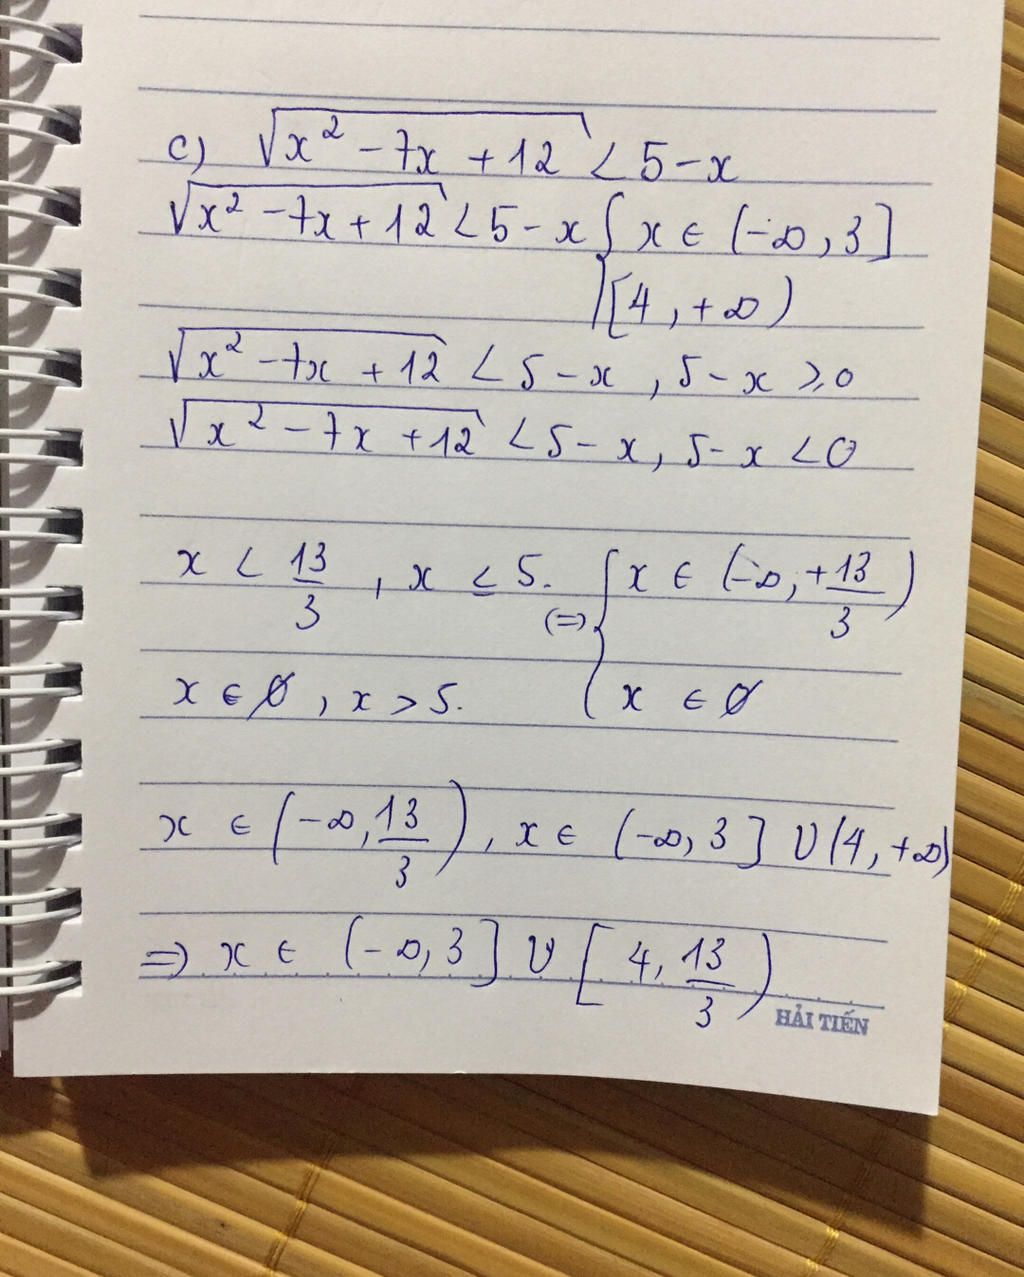 c) √(x² - 7x + 12) < 5 - x
√(x² - 7x + 12) < 5 - x { x ∈ (-∞, 3]
[4, +∞)
√(x² - 7x + 12) < 5 - x, 5 - x ⩾ 0
√(x² - 7x + 12) < 5 - x, 5 - x < 0
x < 13/3, x ≤ 5. (=) { x ∈ (-∞, +13/3)
x ∈ ∅, x > 5. x ∈ ∅
x ∈ (-∞, 13/3), x ∈ (-∞, 3] U (4, +∞)
=) x ∈ (-∞, 3] U [4, 13/3)
HẢI TIẾN